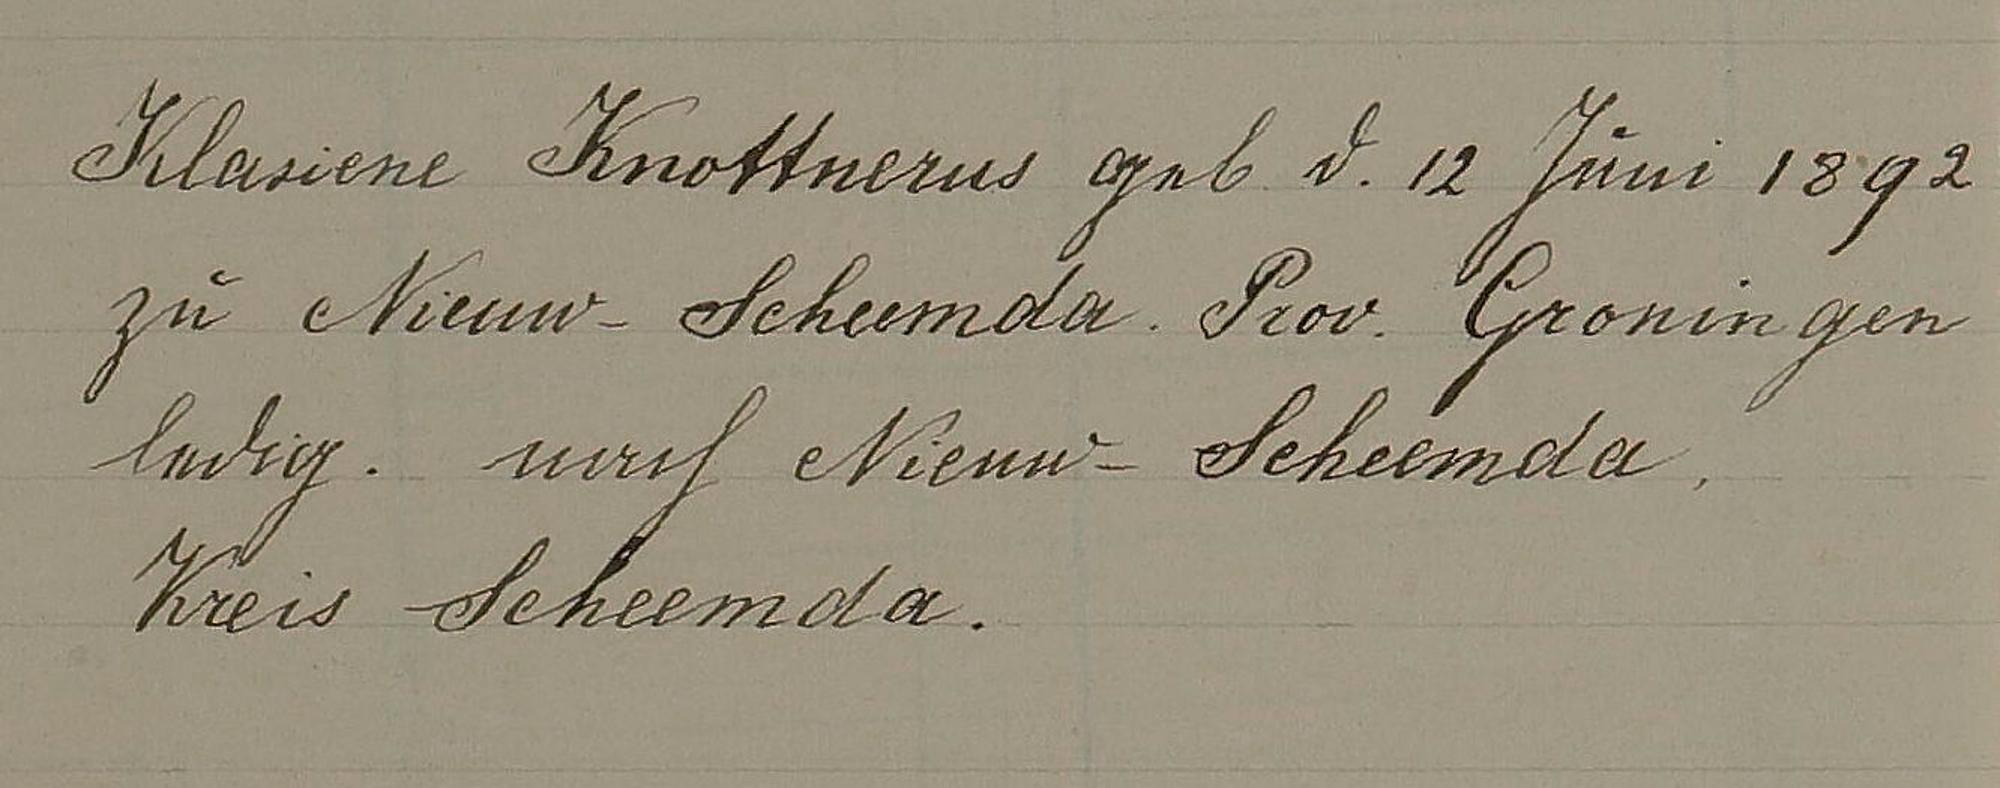 Klasiene Knottnerus geb d. 12 Juni 1892
zu Nieuw-Scheemda. Prov. Groningen
ledig. nach Nieuw-Scheemda,
Kreis Scheemda.